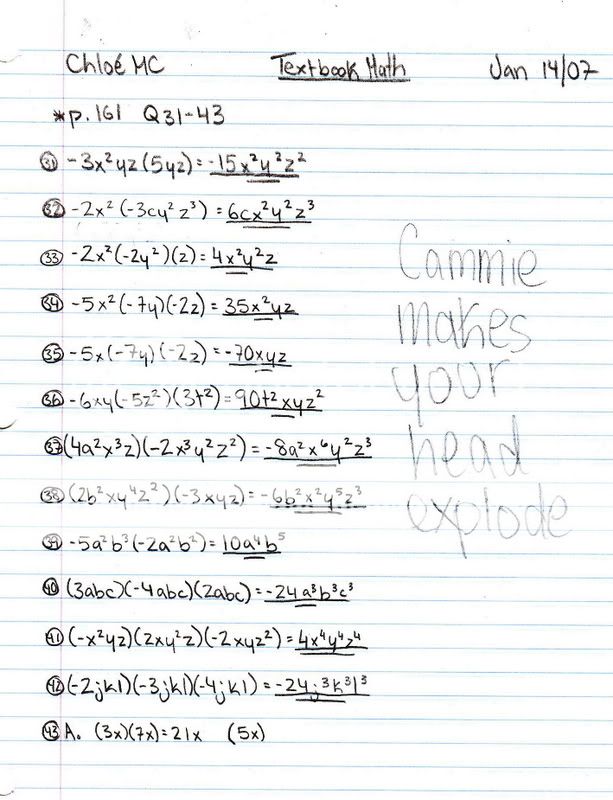 Chloé MC Textbook Math Jan 14/07
*p.161 Q31-43
31 -3x²yz(5yz)=-15x²y²z²
32 -2x²(-3cy²z³)=6cx²y²z³
33 -2x²(-2y²)(z)=4x²y²z
34 -5x²(-7y)(-2z)=35x²yz
35 -5x(-7y)(-2z)=-70xyz
36 -6xy(-5z²)(3t²)=90t²xyz²
37 (4a²x³z)(-2x³y²z²)=-8a²x⁶y²z³
38 (2b²xy⁴z²)(-3xyz)=-6b²x²y⁵z³
39 -5a²b³(-2a²b²)=10a⁴b⁵
40 (3abc)(-4abc)(2abc)=-24a³b³c³
41 (-x²yz)(2xy²z)(-2xyz²)=4x⁴y⁴z⁴
42 (-2jkl)(-3jkl)(-4jkl)=-24j³k³l³
43 A. (3x)(7x)=21x (5x)
Cammie
makes
your
head
explode